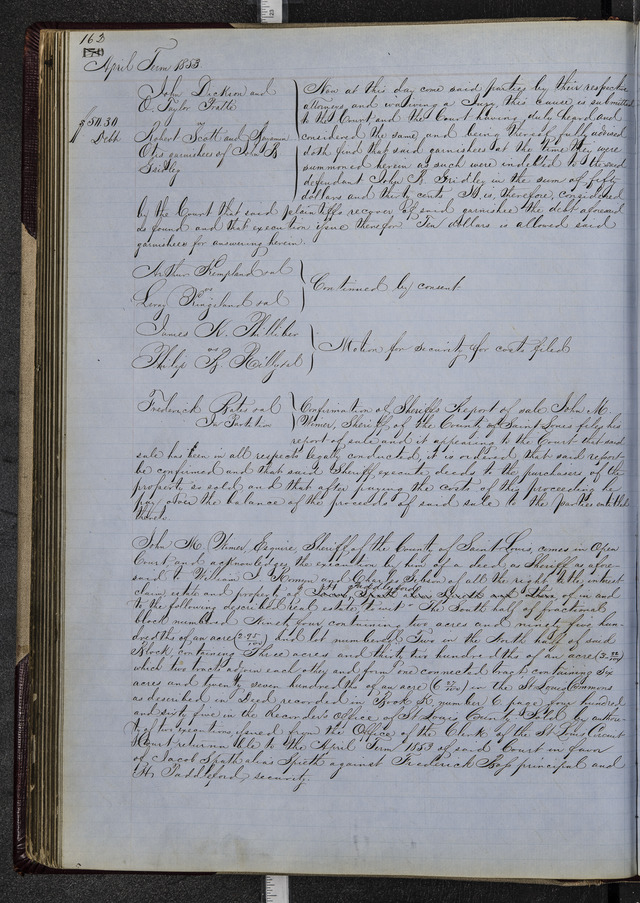 162
April Term 1853
John Dickson and
O. Taylor Pratte
vs
$50.30
Debt
Robert Scott and
Otis garnishees of John B
Gridley
Now at this day come said parties by their respective
attorneys, and waiving a Jury, this cause is submitted
to the Court and the Court having duly heard and
considered the same, and being thereof fully advised
doth find that said garnishees at the time they were
summoned herein as such were indebted to the said
defendant John B. Gridley in the sum of fifty
dollars and thirty cents It is, therefore, considered
by the Court that said plaintiffs recover of said garnishee the debt aforesaid
as found and that execution issue therefor. Ten dollars is allowed said
garnishees for answering herein.
Arthur Kempland et al
vs
Leroy Kingsland et al
Continued by consent
James H. Hilliker
vs
Philip R. Reilly et al
Motion for security for costs filed
Frederick Bates et al
In Partition
Confirmation of Sheriffs Report of sale John M.
Wimer, Sheriff of the County of Saint Louis files his
report of sale and it appearing to the Court that said
sale has been in all respects legally conducted, it is ordered that said report
be confirmed and that said Sheriff execute deeds to the purchasers of the
property so sold and that after paying the costs of this proceeding he
pay over the balance of the proceeds of said sale to the parties entitled
thereto
John M. Wimer, Esquire, Sheriff of the County of Saint Louis, comes in Open
Court and acknowledges the execution by him of a deed as Sheriff as afore-
said to William and Charles of all the right, title, interest
claim, estate and property of of in and
to the following described real estate, to wit: The South half of fractional
block numbered Ninety four containing two acres and ninety five hun-
dredths of an acre (2 95/100) and lot numbered Two on the North half of said
Block, containing Three acres and thirty two hundredths of an acre (3 32/100)
which two tracts adjoin each other and form one connected tract containing Six
acres and twenty seven hundredths of an acre (6 27/100) in the St Louis Commons
as described in Deed recorded in Book R. number 6 page four hundred
and sixty five in the Recorder's Office of St Louis County Sold by author-
ity of two executions issued from the Office of the Clerk of the St Louis Circuit
Court returnable to the April Term 1853 of said Court in favor
of Jacob Spath alias Speth against Frederick Bass principal and
H. Paddleford, security.